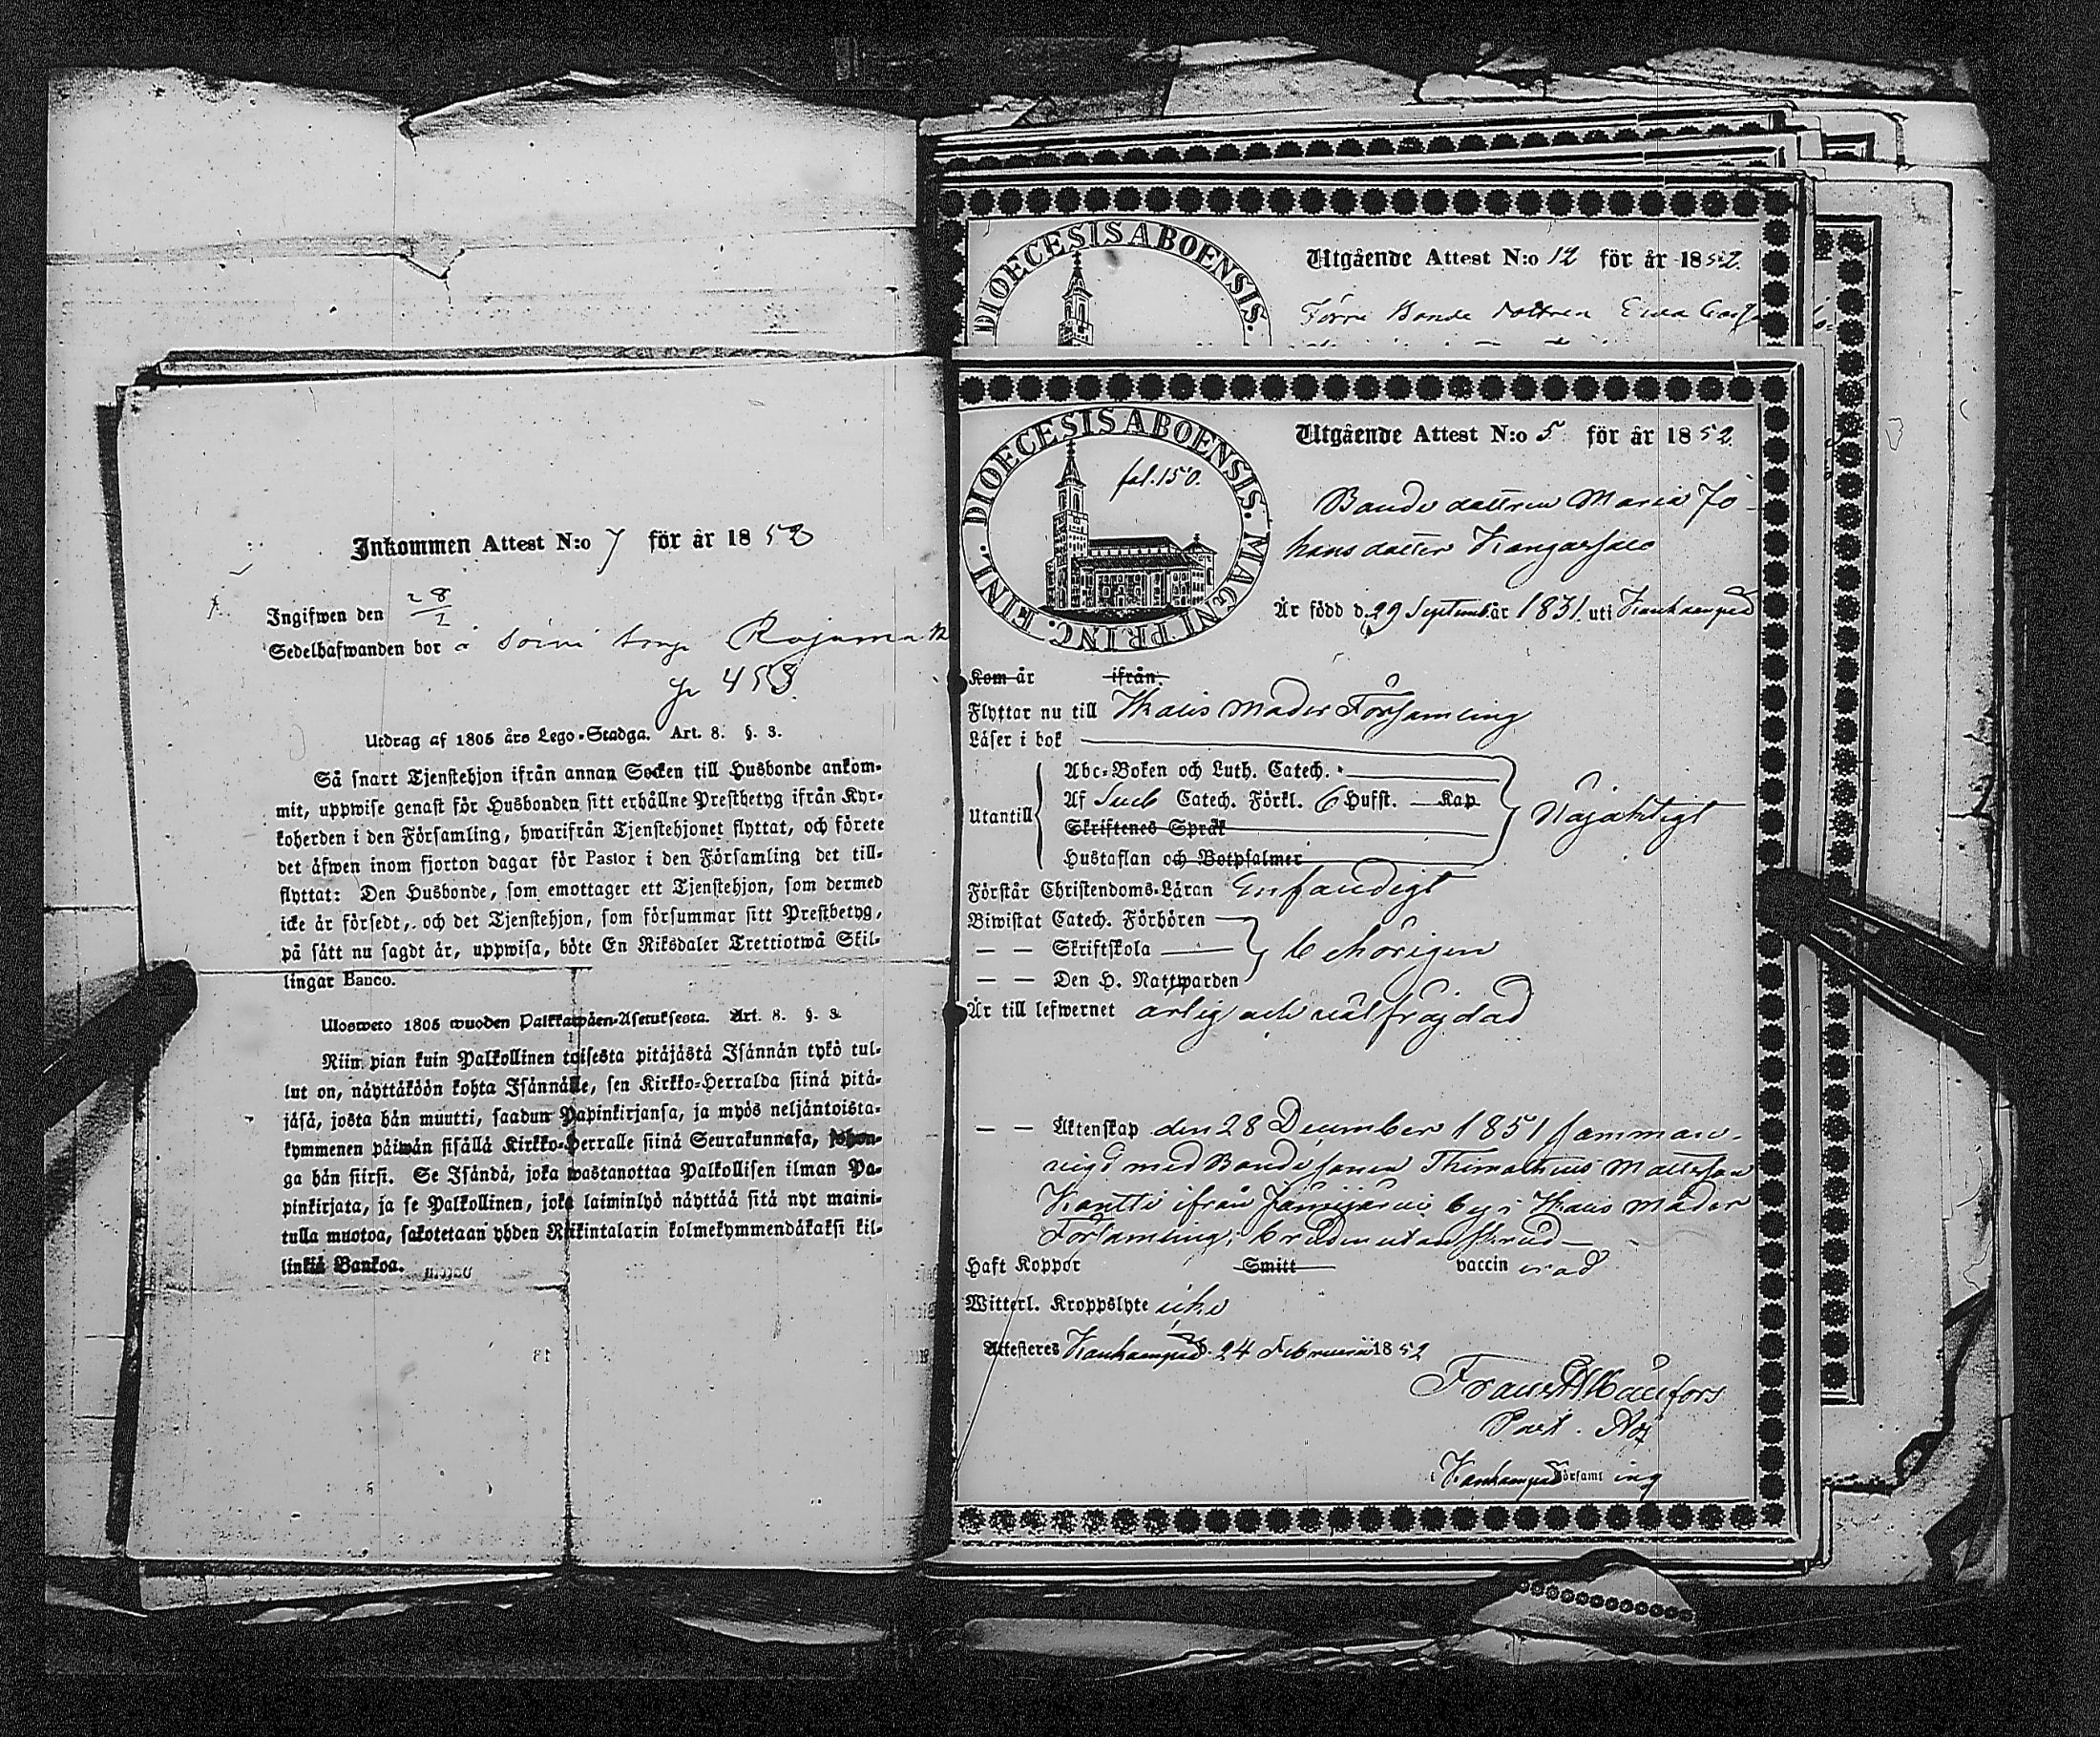 Inkommen Attest N:o 7 för år 1852
Ingifwen den 28/2
Sedelhafwanden bor
458
Utdrag af 1805 års Lego-Stadga. Art. 8. §. 3.
Så snart Tjenstehjon ifrån annan Socken till Husbonde ankom-
mit, uppwise genast för Husbonden sitt erhållne Prestbetyg ifrån Kyr-
koherden i den Församling, hwarifrån Tjenstehjonet flyttat, och förete
det äfwen inom fjorton dagar för Pastor i den Församling det till-
flyttat: Den Husbonde, som emottager ett Tjenstehjon, som dermed
icke är försedt, och det Tjenstehjon, som försummar sitt Prestbetyg,
på sätt nu sagdt är, uppwisa, böte En Riksdaler Trettiotwå Skil-
lingar Banco.
Ulosweto 1805 wuoden Palkkawäen-Asetuksesta. Art. 8. §. 3.
Niin pian kuin Palkollinen toisesta pitäjästä Isännän tykö tul-
lut on, näyttäköön kohta Isännälle, sen Kirkko-Herralda siinä pitä-
jäsä, josta hän muutti, saadun Papinkirjansa, ja myös neljäntoista-
kymmenen päiwän sisällä Kirkko-Herralle siinä Seurakunnasa, johon-
ga hän siirsi. Se Isändä, joka wastanottaa Palkollisen ilman Pa-
pinkirjata, ja se Palkollinen, joka laiminlyö näyttää sitä nyt maini-
tulla muotoa, sakotetaan yhden Riikintalarin kolmekymmendäkaksi kil-
linkiä Bankoa.
DIOECESIS ABOENSIS.
Utgående Attest N:o 12 för år 1852.
Förra Bonde dottren
DIOECESIS ABOENSIS. MAGNI PRINC. FINL.
fol. 150.
Utgående Attest N:o 5 för år 1852
Bonde dottren Maria Jo-
hans dotter Kangarsalo
Är född d. 29 September år 1831. uti Kankaanpää
Kom år ifrån.
Flyttar nu till Församling
Läser i bok
Utantill
Abc-Boken och Luth. Catech.
Af Catech. Förkl. 6 Hufst. Kap
Skriftenes Språk
Hustaflan och Botpsalmer
Nöjaktigt
Förstår Christendoms-Läran Enfaldigt
Biwistat Catech. Förhören
— — Skriftskola
— — Den H. Nattwarden
behörigen
Är till lefwernet ärlig och välfräjdad
— — Äktenskap den 28 December 1851 samman-
vigd med Bonde sonen Thimotheus Mattsson
Kantti ifrån by i
Församling,
Haft Koppor Smitt vaccinerad
Witterl. Kroppslyte icke
Attesteres Kankaanpää d. 24 Februarii 1852
Past. Adj
i Kankaanpää Församling